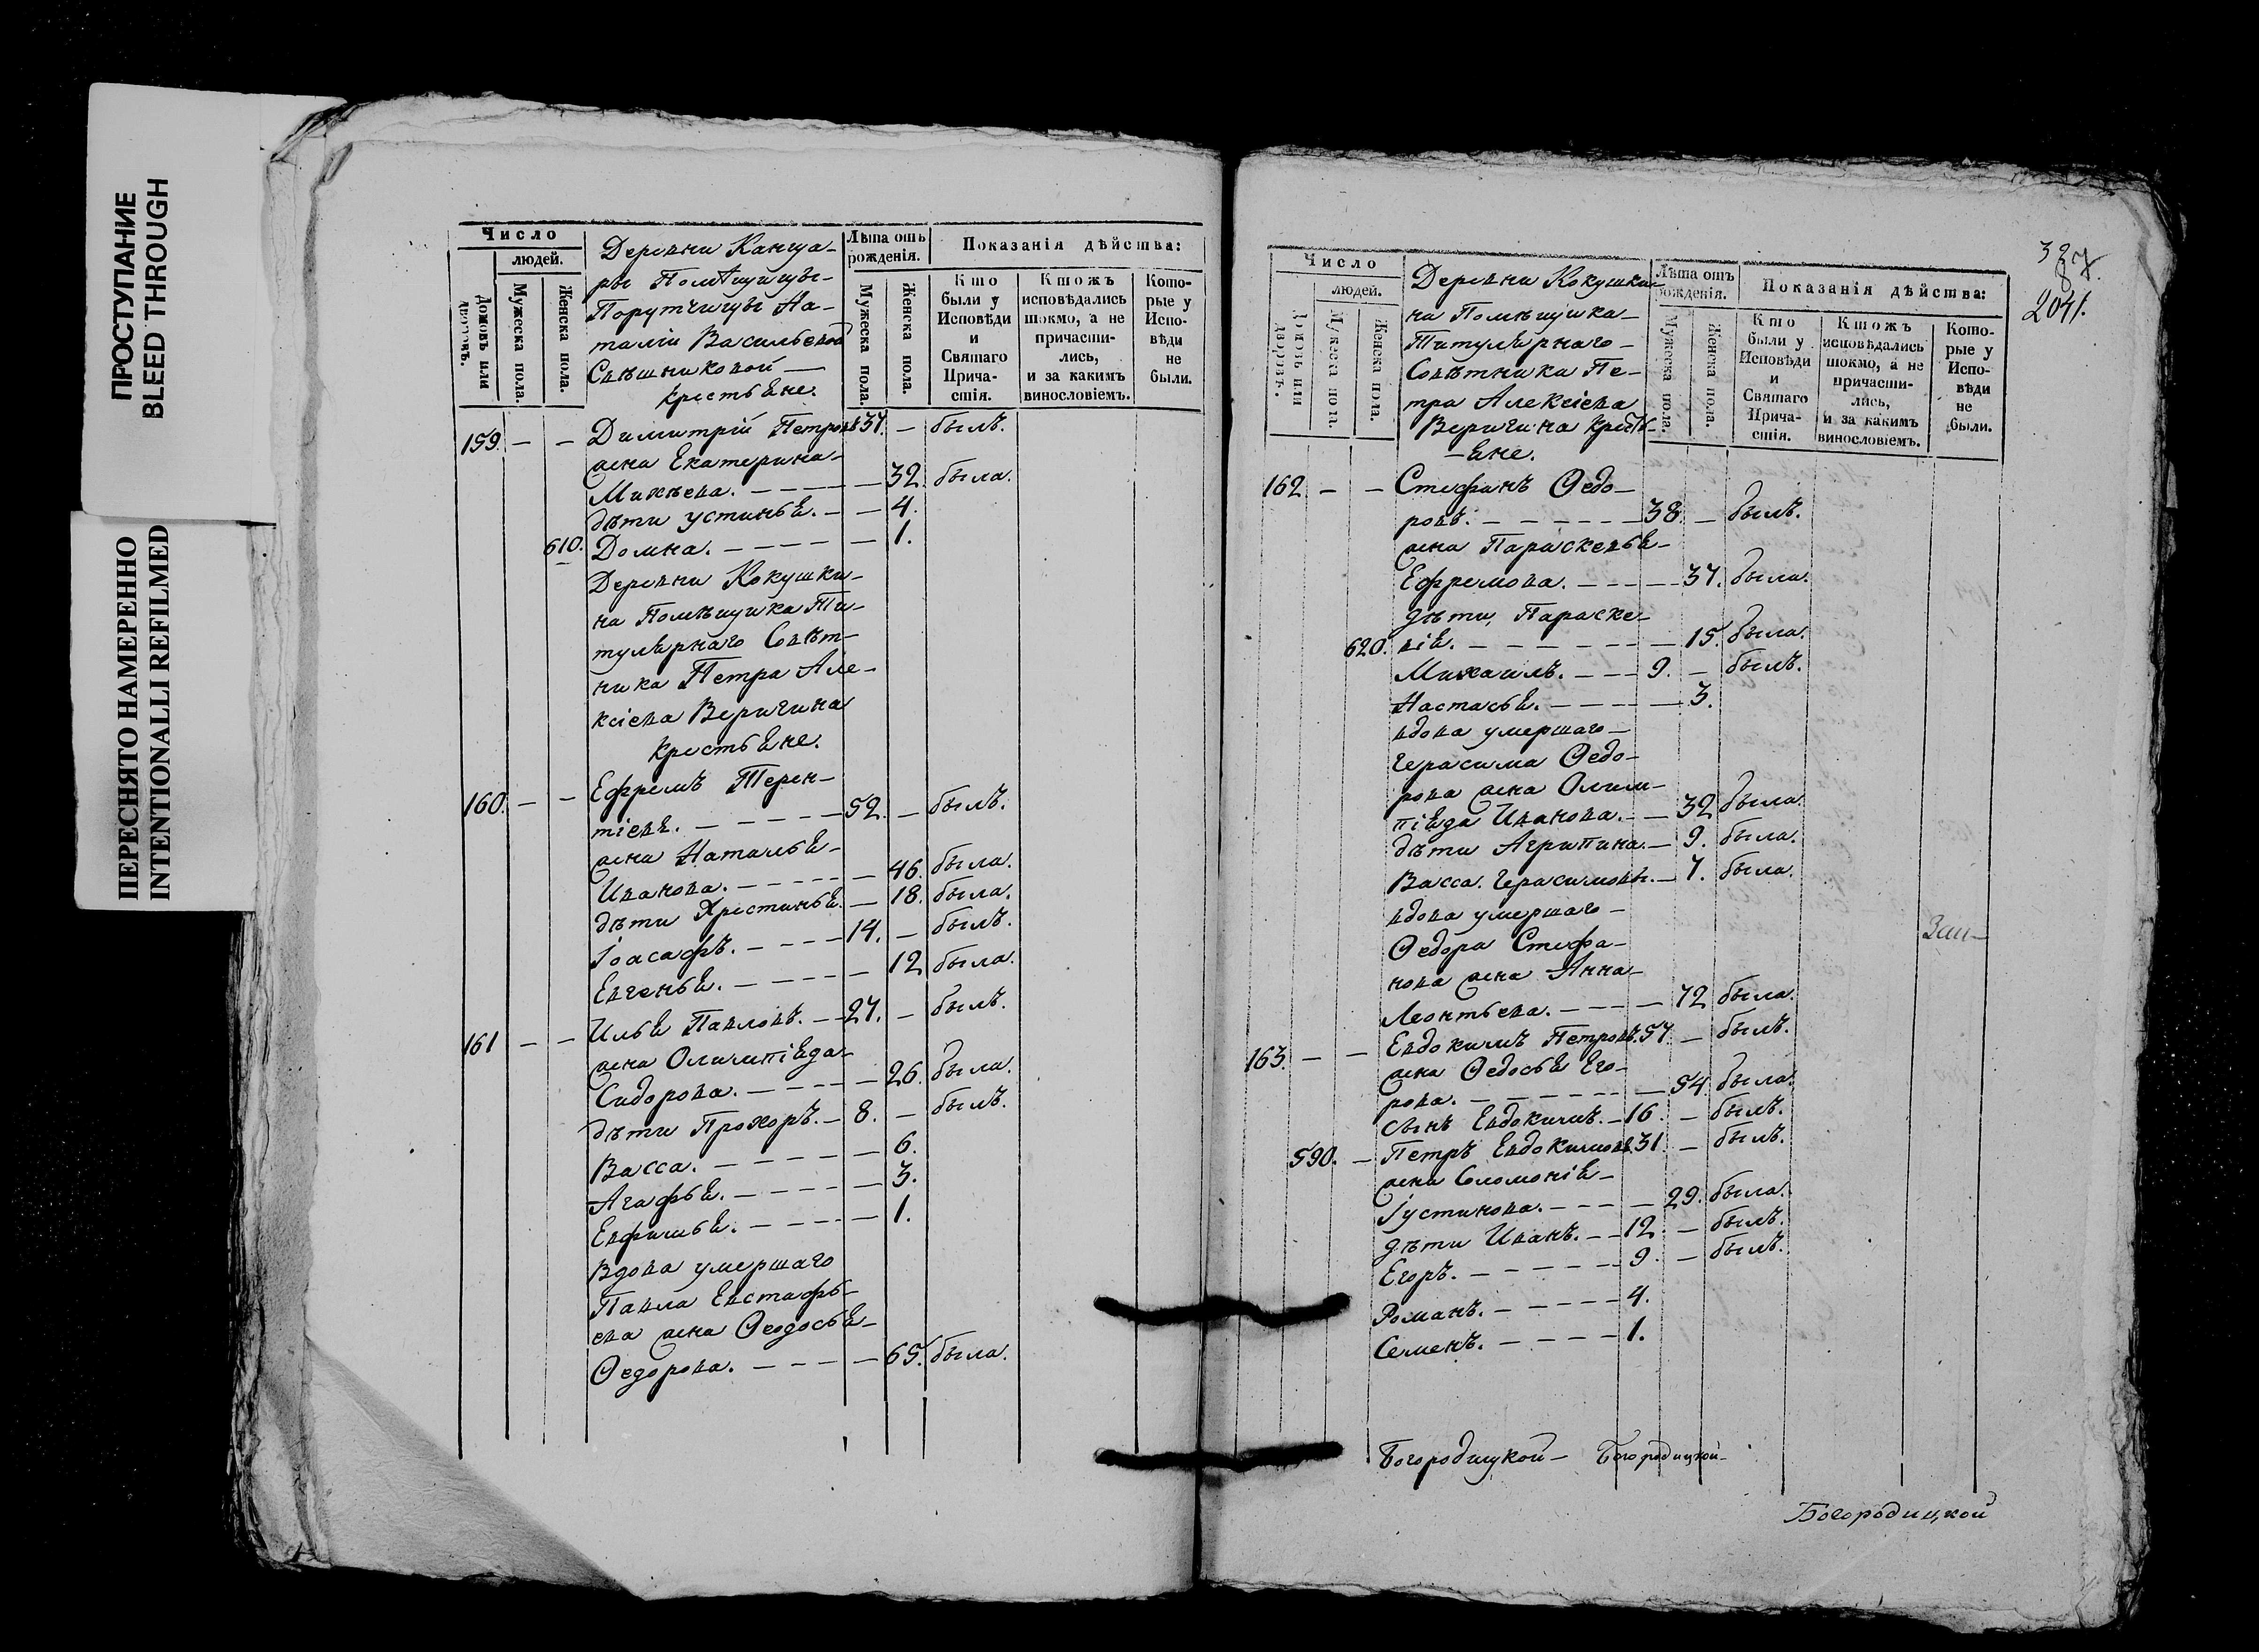 ПРОСТУПАНИЕ
BLEED THROUGH
ПЕРЕСНЯТО НАМЕРЕННО
INTENTIONALLI REFILMED
Число
людей.
Домовъ или дворовъ.
Мужеска пола.
Женска пола.
Деревни Канца-
ры Помѣщицы
Порутчицы На-
таліи Васильевой
Свѣшниковой
крестьяне.
Лѣта отъ рожденія.
Мужеска пола.
Женска пола.
Показанія дѣйства:
Кто были у Исповѣди и Святаго Причастія.
Ктожъ исповѣдались токмо, а не причастились, и за какимъ винословіемъ.
Которые у Исповѣди не были.
159. — — Димитрій Петровъ 37. — былъ.
жена Екатерина
Михѣева. — 32. была.
дѣти Устинья. — 4.
610. Домна. — 1.
Деревни Кокушки-
на Помѣщика Ти-
тулярнаго Совѣт-
ника Петра Але-
ксіева Веригина
крестьяне.
160. — — Ефремъ Терен-
тіевъ. — 52. — былъ.
жена Наталья
Иванова. — 46. была.
дѣти Христинья. — 18. была.
Іоасафъ. — 14. — былъ.
Евгенья. — 12 была.
161 — — Илья Павловъ. — 27. — былъ.
жена Олимпіяда
Сидорова. — 26. была.
дѣти Прохоръ. — 8. — былъ.
Васса. — 6.
Агафья. — 3.
Евфимья. — 1.
Вдова умершаго
Павла Евстафь-
ева жена Феодосья
Федорова. — 65. была.
387.
2041.
Число
людей.
Домовъ или дворовъ.
Мужеска пола.
Женска пола.
Деревни Кокушки-
на Помѣщика
Титулярнаго
Совѣтника Пе-
тра Алексіева
Веригина кресть-
яне.
Лѣта отъ рожденія.
Мужеска пола.
Женска пола.
Показанія дѣйства:
Кто были у Исповѣди и Святаго Причастія.
Ктожъ исповѣдались токмо, а не причастились, и за какимъ винословіемъ.
Которые у Исповѣди не были.
162 — — Стефанъ Ѳедо-
ровъ. — 38. — былъ.
жена Параскевья
Ефремова. — 37. была.
дѣти Параске-
620. вія. — 15. была.
Михаилъ. — 9. — былъ.
Настасья. — 3.
вдова умершаго
Герасима Ѳедо-
рова жена Олим-
піяда Иванова. — 32 была.
дѣти Агрипина. — 9. была.
Васса. Герасимовы. — 7. была.
вдова умершаго
Ѳедора Стефа-
нова жена Анна
Леонтьева. — 72 была.
163. — — Евдокимъ Петровъ. 57. — былъ.
жена Ѳедосья Его-
рова. — 54 была.
сынъ Евдокимъ. — 16. — былъ.
590. — Петръ Евдокимовъ 31. — былъ.
жена Соломонія
Іустинова. — 29. была.
дѣти Иванъ. — 12. — былъ.
Егоръ. — 9. — былъ.
Романъ. — 4.
Семенъ. — 1.
Богородицкой — Богородицкой
Богородицкой